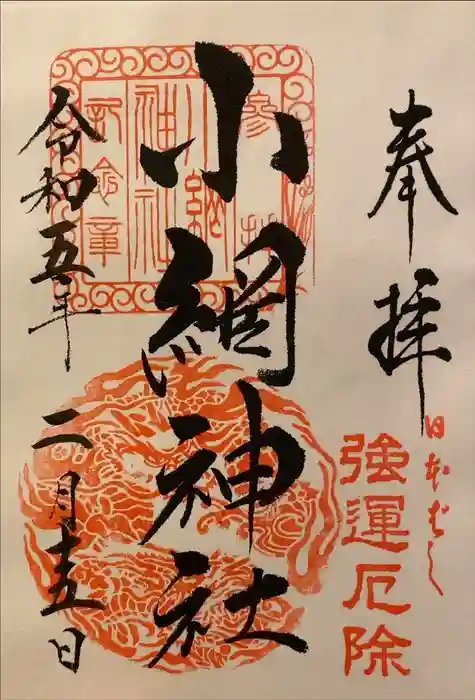 奉拝
日本ばし
強運厄除
小網神社
参拝
小網神社
記念章
令和五年二月十五日